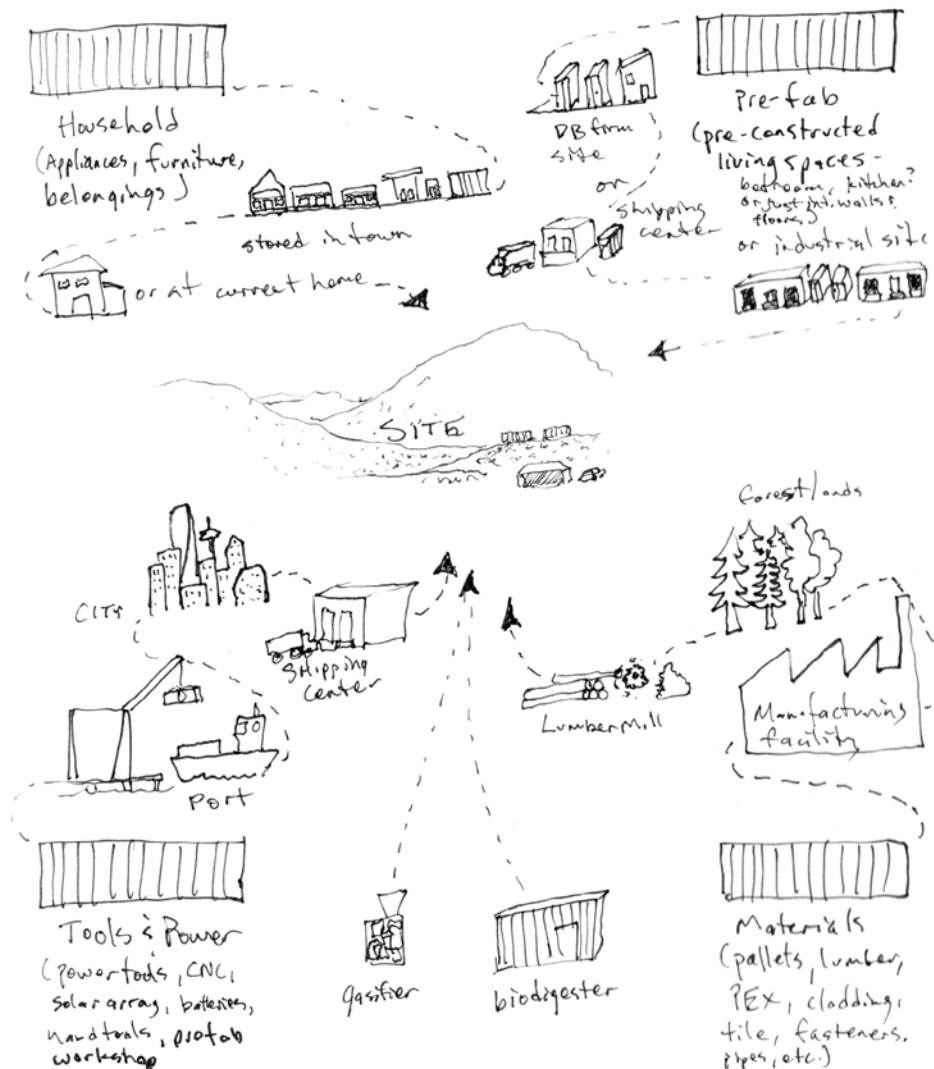 Household
(Appliances, furniture,
belongings)
stored in town
or at current home
DB firm
site
or
shipping
center
Pre-fab
(pre-constructed
living spaces -
bedroom, kitchen?
or just int. walls &
floors)
or industrial site
SITE
CITY
Shipping
Center
Port
forestlands
Lumber Mill
Manufacturing
facility
Tools & Power
(power tools, CNC,
solar array, batteries,
hand tools, prefab
workshop
gasifier
biodigester
Materials
(pallets, lumber,
PEX, cladding,
tile, fasteners,
pipes, etc.)